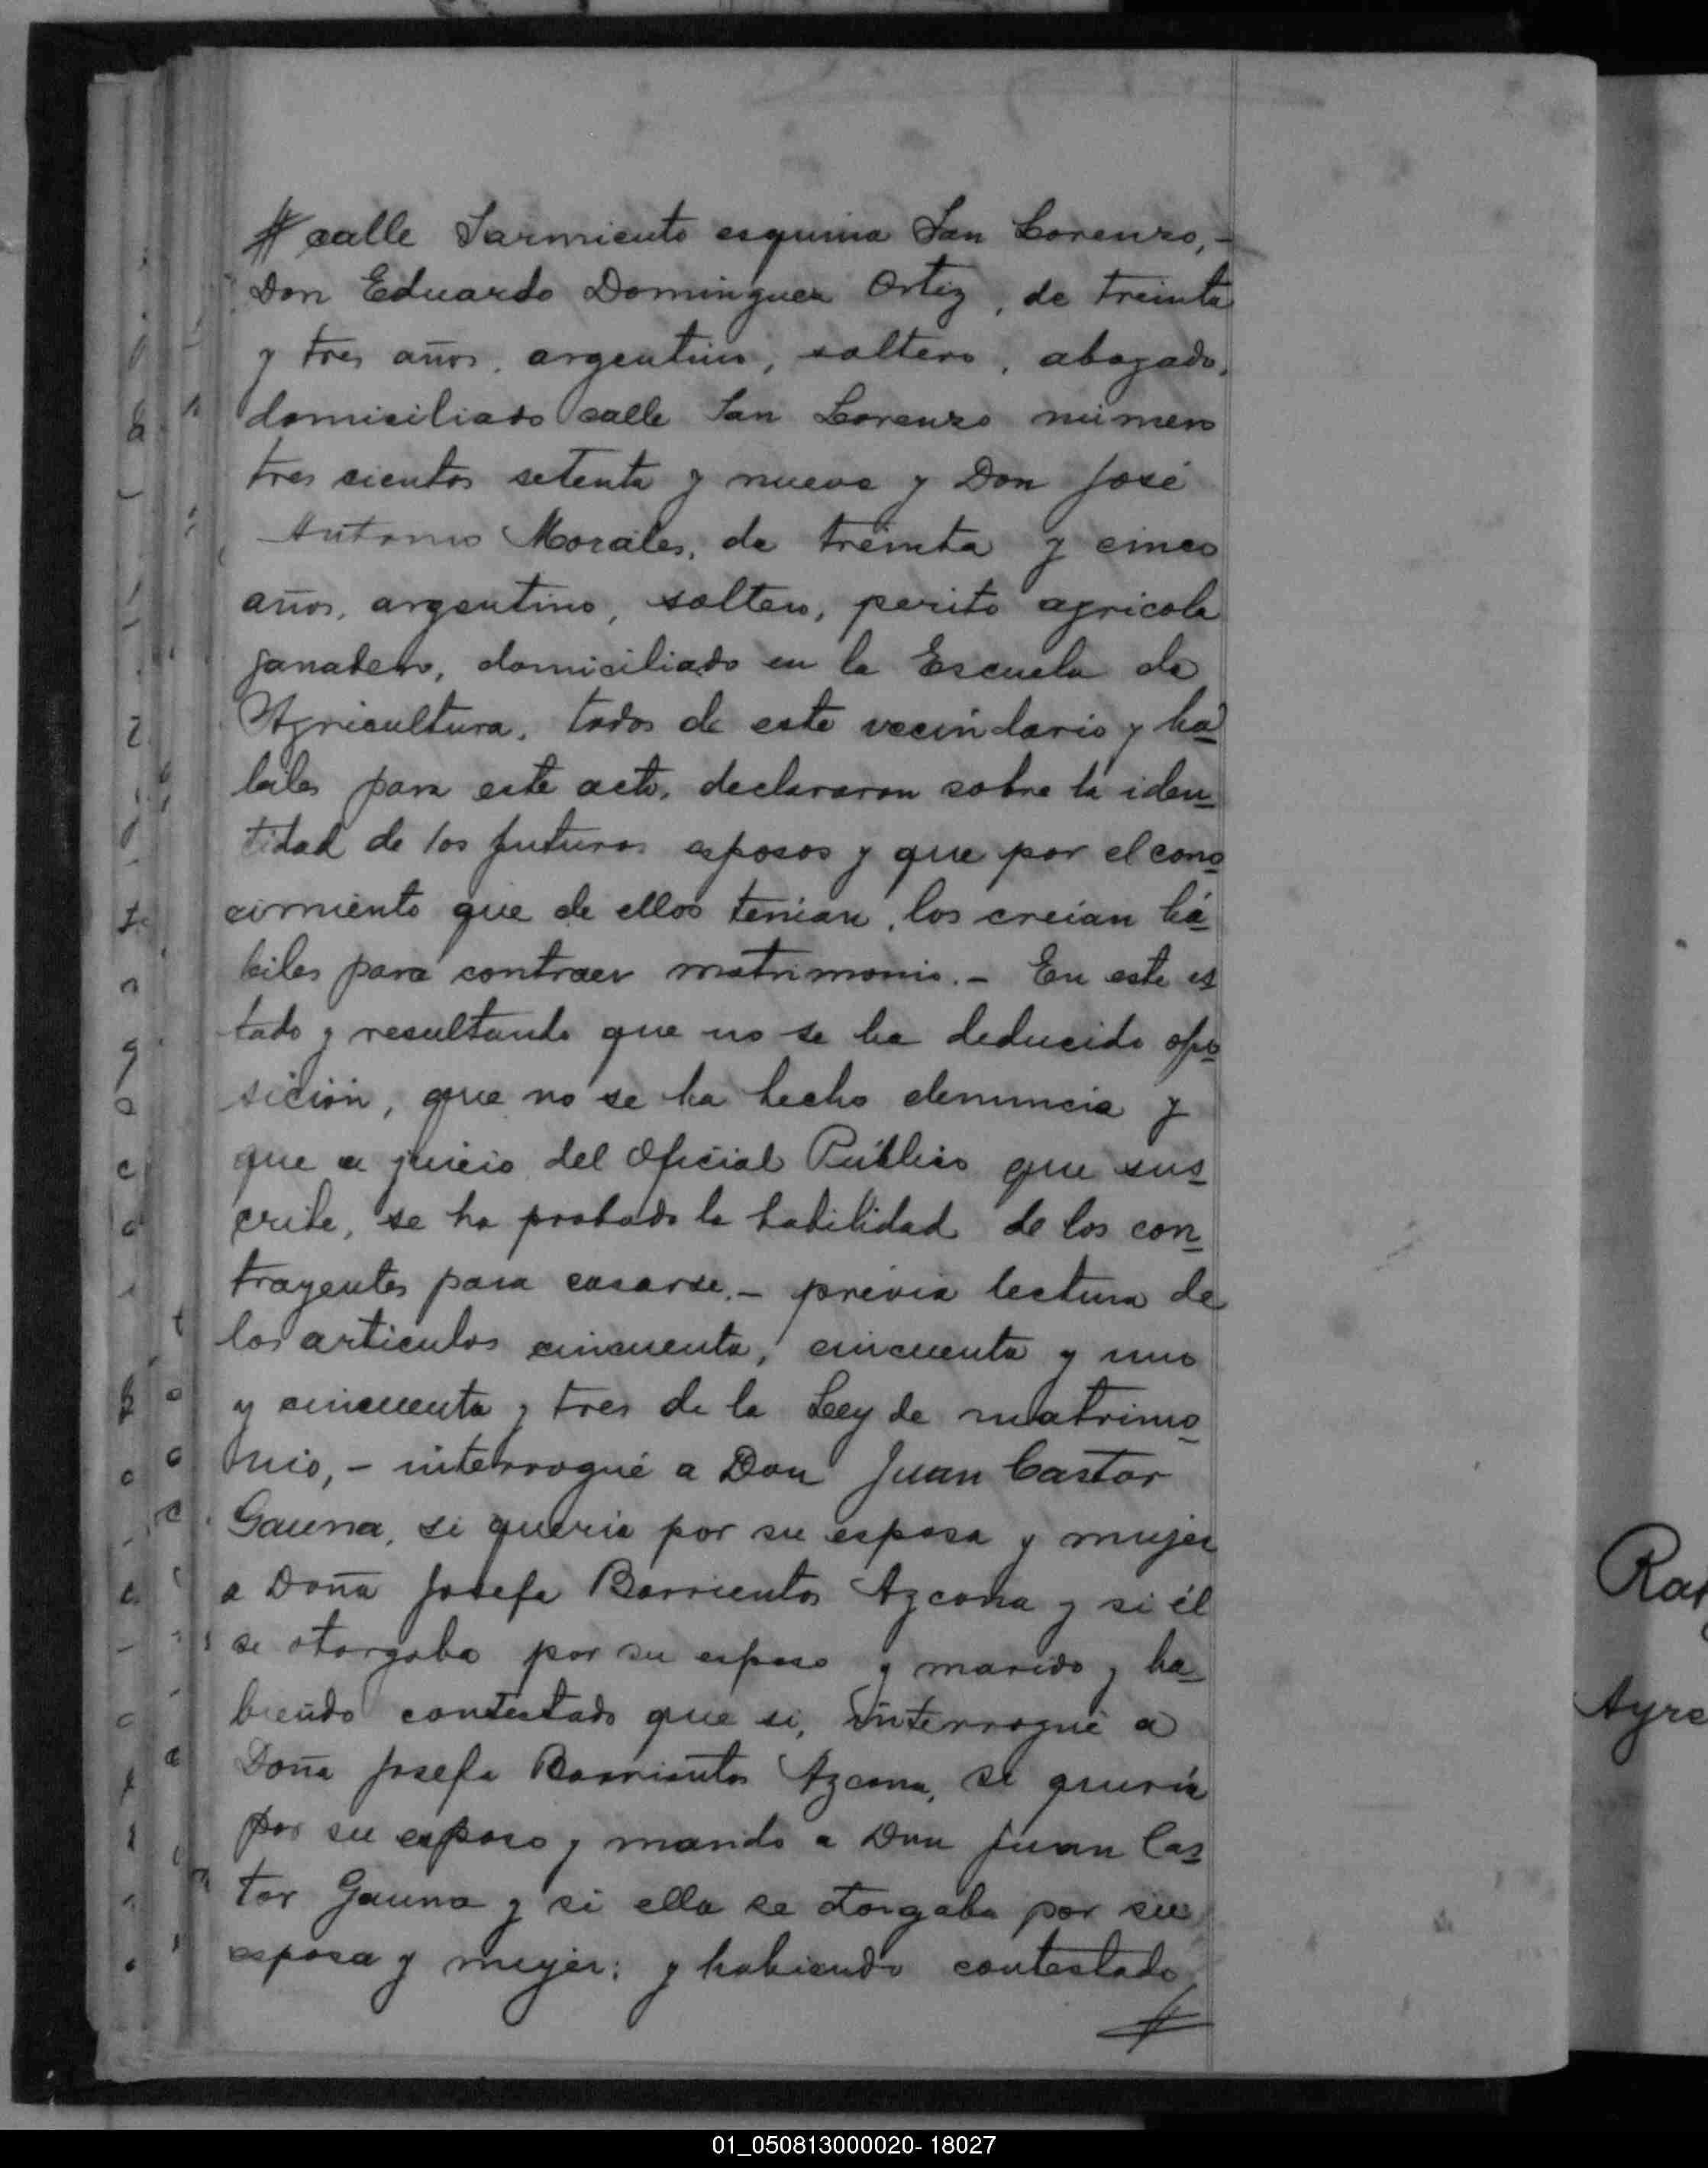 # calle Sarmiento esquina San Lorenzo,-
Don Eduardo Dominguez Ortiz, de treinta
y tres años, argentino, soltero, abogado,
domiciliado calle San Lorenzo número
tres cientos setenta y nueve y Don José
Antonio Morales, de treinta y cinco
años, argentino, soltero, perito agricola
ganadero, domiciliado en la Escuela de
Agricultura, todos de este vecindario y há
biles para este acto, declararon sobre la iden
tidad de los futuros esposos y que por el cono
cimiento que de ellos tenian, los creían há
biles para contraer matrimonio.- En este es
tado y resultando que no se ha deducido opo
sición, que no se ha hecho denuncia y
que a juicio del Oficial Público que sus
cribe, se ha probado la habilidad de los con
trayentes para casarse.- previa lectura de
los articulos cincuenta, cincuenta y uno
y cincuenta y tres de la Ley de matrimo
nio,- interrogué a Don Juan Castor
Gauna, si queria por su esposa y mujer
a Doña Josefa Barrientos Azcona y si él
se otorgaba por su esposo y marido y ha
biendo contestado que si, interrogué a
Doña Josefa Barrientos Azcona, si quería
por su esposo y marido a Don Juan Cas
tor Gauna y si ella se otorgaba por su
esposa y mujer; y habiendo contestado
#
01_050813000020- 18027